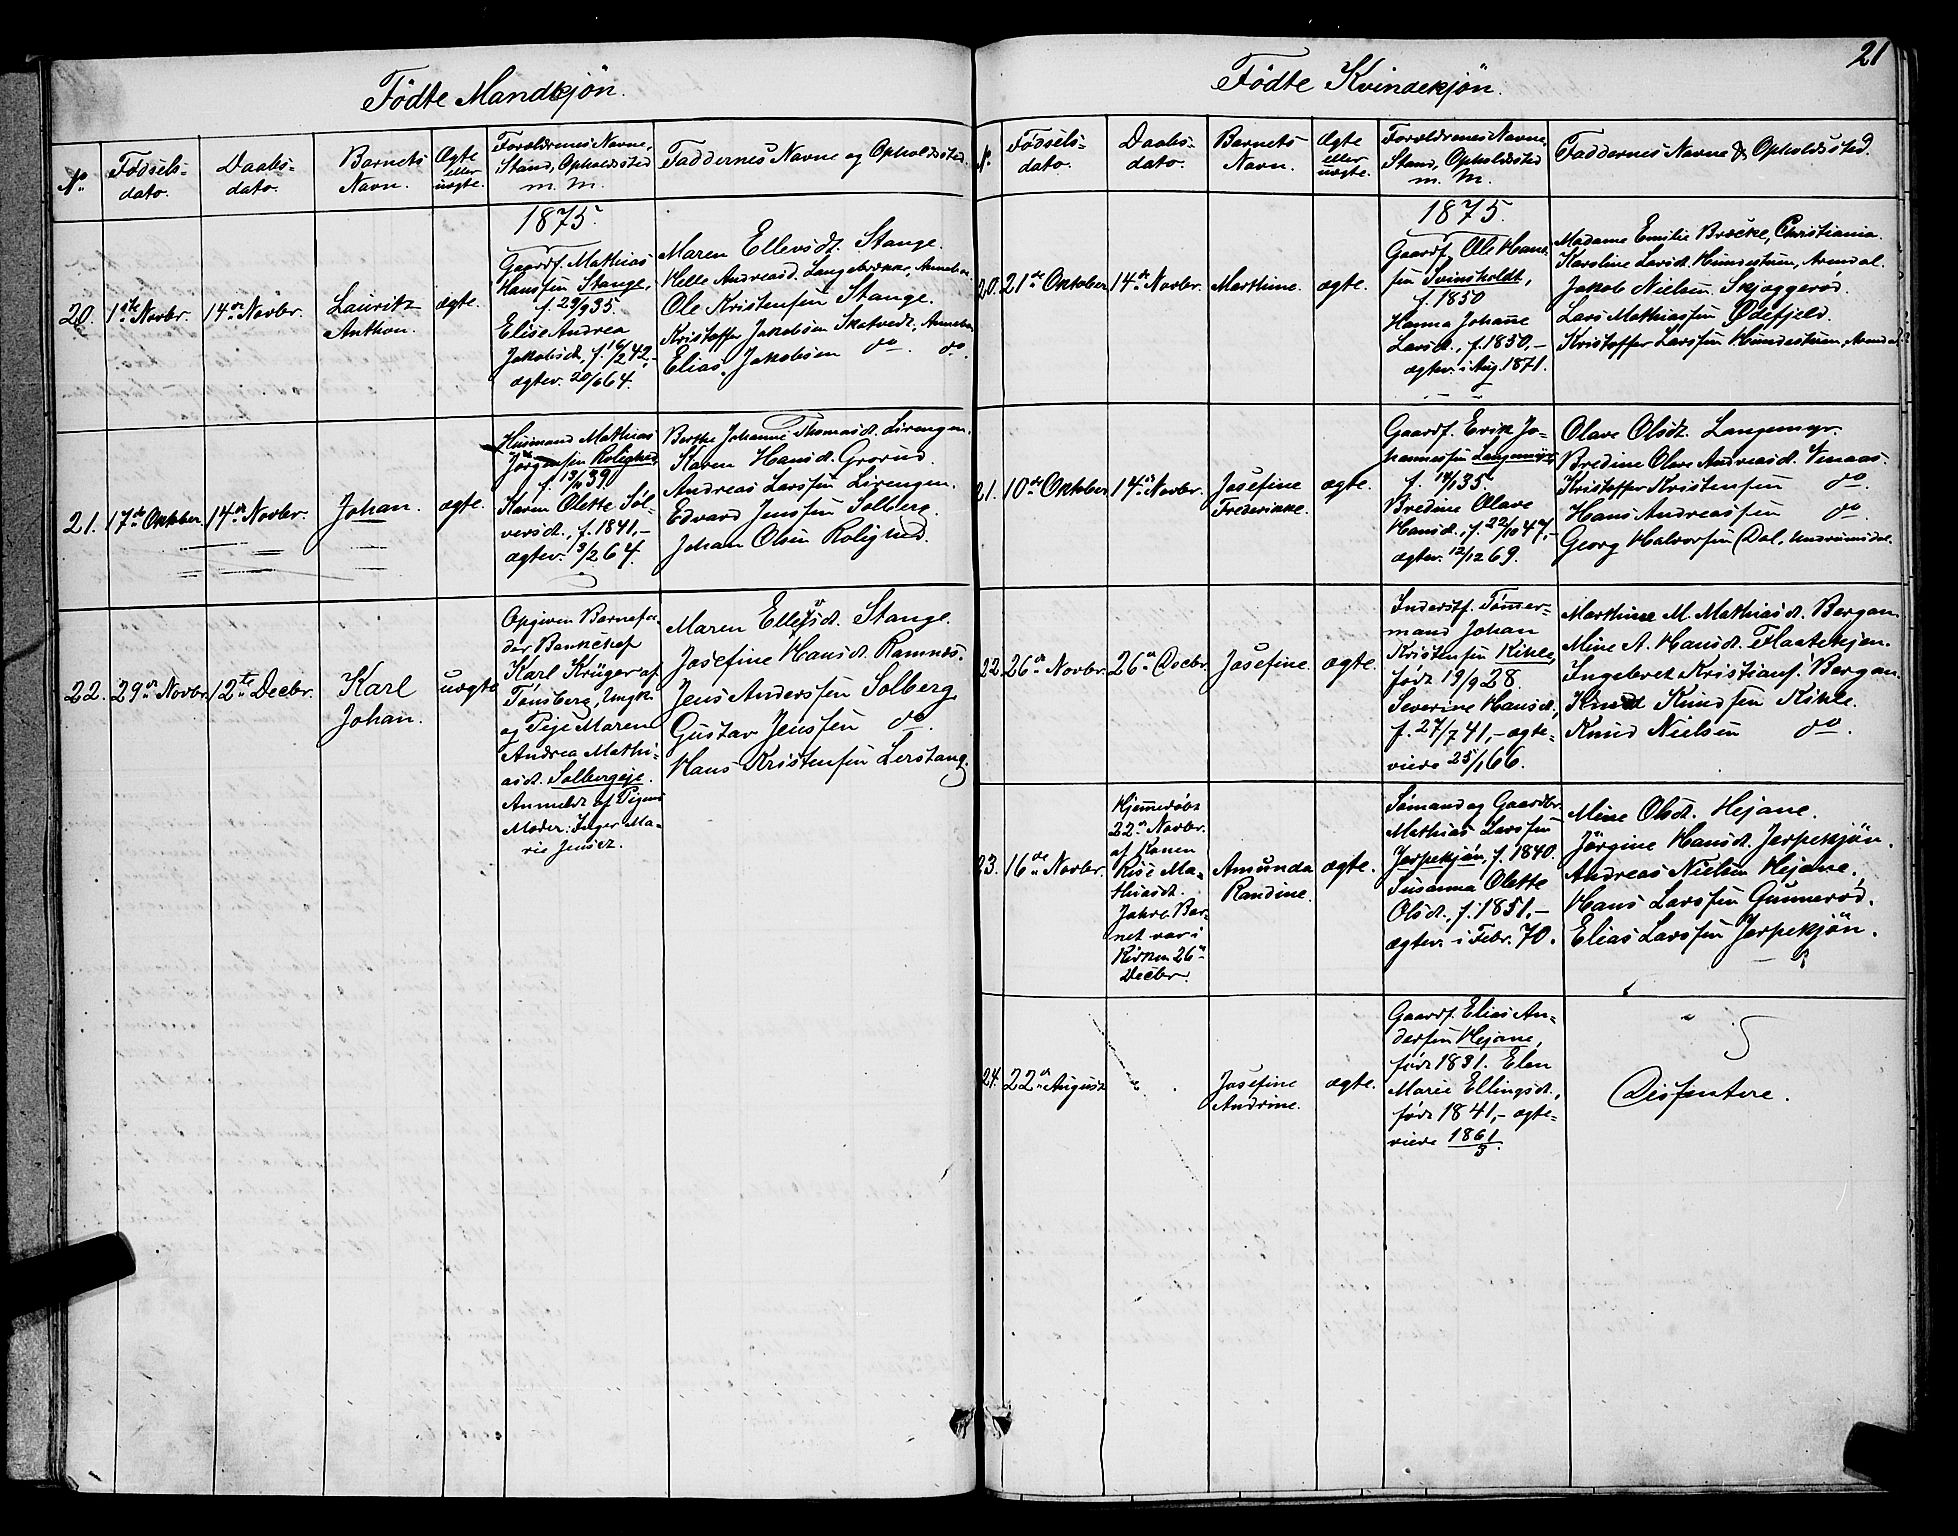 Fødte Mandkjön.
No. Fødsels-dato. Daabs-dato. Barnets Navn. Ægte eller uægte. Forældrenes Navne, Stand, Opholdssted m. M. Faddernes Navne og Opholdssted.
1875.
20. 1ste Novbr. 14de Novbr. Lauritz Anthon. ægte.
Gaardf. Mathias
Hansen Stange,
f. 29/9 35.
Elise Andrea
Jakobsd., f. 16/2 42,-
ægtev. 20/6 64.
Maren Ellevsdt. Stange.
Helle Andreasd. Langebrække,
Ole Kristensen Stange.
Kristoffer Jakobsen Skatvedt,
Elias Jakobsen do. do.
21. 17de Oktober. 14de Novbr. Johan. ægte.
Husmand Mathias
Jörgensen Rolighed,
Karen Olette Söl-
versd., f. 1841,-
ægtev. 3/2 64.
Berthe Johanne Thomasd. Lirengen.
Karen Hansd. Grorud.
Andreas Larssen Lirengen.
Edvard Jenssen Solberg.
Johan Olsen Rolighed.
22. 29de Novbr. 12te Decbr. Karl Johan. uægte
Opgiven Barnefa-
der Bankchef
Karl Krüger af
Tønsberg, Ungk.
og Pige Maren
Andrea Mathi-
asd. Solbergeje.
Anmeldt af Pigens
Moder: Inger Ma-
rie Jensd.
Maren Ellevsd. Stange.
Josefine Hansd. Ramnes.
Jens Anderssen Solberg
Gustav Jenssen do.
Hans Kristensen Lerstang.
21
Fødte Kvindekjön.
No. Fødsels-dato. Daabs-dato. Barnets Navn. Ægte eller uægte. Forældrenes Navne, Stand, Opholdssted m. M. Faddernes Navne & Opholdssted.
1875.
20. 21de Oktober 14de Novbr. Marthine. ægte.
Gaardf. Ole Han-
sen Svinskoldt,
f. 1850
Hanna Johanne
Larsd., f. 1850,-
ægtev. i Aug. 1871.
Madame Emilie Bröcke, Christiania.
Karoline Larsd. Hundestuen, Arendal.
Jakob Nielsen Skjæggerød.
Lars Mathiassen Ødefjeld.
Kristoffer Larssen Hundestuen, Arendal
21. 10de Oktober 14de Novbr. Josefine Frederikke. ægte.
Gaardf. Erik Jo-
hannessen Langemyr,
f. 14/1 35.
Bredine Olave
Hansd., f. 22/10 47,-
ægtev. 12/12 69.
Olave Olsdt. Langemyr.
Bredine Olave Andreasd. Smaas.
Kristoffer Kristensen do.
Hans Andreassen do.
Georg Halvorsen Dal, Undrumsdal.
22. 26de Novbr. 26de Decbr. Josefine. ægte.
Inderstf. Tömer-
mand Johan
Kristensen Kihle,
født 19/9 28.
Severine Hansd.,
f. 27/7 41,- ægte-
viede 25/1 66.
Marthine M. Mathiasd. Bergan.
Mine A. Hansd. Flaatekjen.
Ingebret Kristians. Bergan.
Knud Knudsen Kihle.
Knud Nielsen do.
23. 16de Novbr. Amunda Randine. ægte.
Hjemedöbt
22de Novbr.
af Konen
Rise Ma-
thiasdt.
Jahre. Bar-
net var i
Kirken 26de
Decbr.
Sömand og Gaardbr.
Mathias Larssen
Jerpekjön, f. 1840.
Susanna Olette
Olsd., f. 1851,-
ægtev. i Febr. 70.
Mine Olsd. Hejane.
Jörgine Hansd. Jerpekjön.
Andreas Nielsen Hejane.
Hans Larssen Gunnerød.
Elias Larssen Jerpekjön.
24. 22de August Josefine Andrine. ægte.
Gaardf. Elias An-
dersen Hejane,
født 1831. Elen
Marie Ellingsd.,
født 1841,- ægte-
viede 1861/3.
Dissentere.